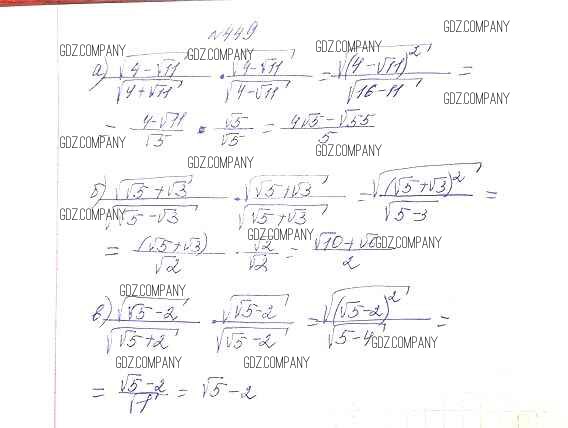 №449
GDZ.COMPANY GDZ.COMPANY GDZ.COMPANY GDZ.COMPANY
а) √(4-√11)/√(4+√11) · √(4-√11)/√(4-√11) = √((4-√11)²)/√(16-11) =
GDZ.COMPANY
= (4-√11)/√5 · √5/√5 = (4√5-√55)/5
GDZ.COMPANY GDZ.COMPANY
GDZ.COMPANY
б) √(√5+√3)/√(√5-√3) · √(√5+√3)/√(√5+√3) = √((√5+√3)²)/√(5-3) =
GDZ.COMPANY
GDZ.COMPANY GDZ.COMPANY
= (√5+√3)/√2 · √2/√2 = (√10+√6)/2
GDZ.COMPANY
в) √(√5-2)/√(√5+2) · √(√5-2)/√(√5-2) = √((√5-2)²)/√(5-4) =
GDZ.COMPANY
GDZ.COMPANY GDZ.COMPANY
= (√5-2)/√1 = √5-2